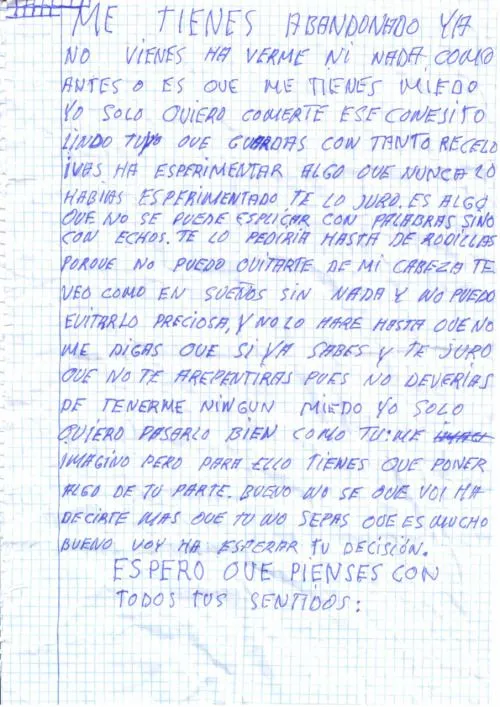 ME TIENES ABANDONADO YA
NO VIENES HA VERME NI NADA, COMO
ANTES O ES QUE ME TIENES MIEDO
YO SOLO QUIERO COMERTE ESE CONESITO
LINDO TUYO QUE GUARDAS CON TANTO RECELO
IVAS HA ESPERIMENTAR ALGO QUE NUNCA LO
HABIAS ESPERIMENTADO TE LO JURO. ES ALGO
QUE NO SE PUEDE ESPLICAR CON PALABRAS SINO
CON ECHOS. TE LO PEDIRIA HASTA DE RODILLAS
PORQUE NO PUEDO QUITARTE DE MI CABEZA TE
VEO COMO EN SUEÑOS SIN NADA Y NO PUEDO
EVITARLO PRECIOSA, Y NO LO HARE HASTA QUE NO
ME DIGAS QUE SI YA SABES Y TE JURO
QUE NO TE AREPENTIRAS PUES NO DEVERIAS
DE TENERME NINGUN MIEDO YO SOLO
QUIERO PASARLO BIEN COMO TU: ME
IMAGINO PERO PARA ELLO TIENES QUE PONER
ALGO DE TU PARTE. BUENO NO SE QUE VOI HA
DECIRTE MAS QUE TU NO SEPAS QUE ES MUCHO
BUENO VOY HA ESPERAR TU DECISIÓN.
ESPERO QUE PIENSES CON
TODOS TUS SENTIDOS: